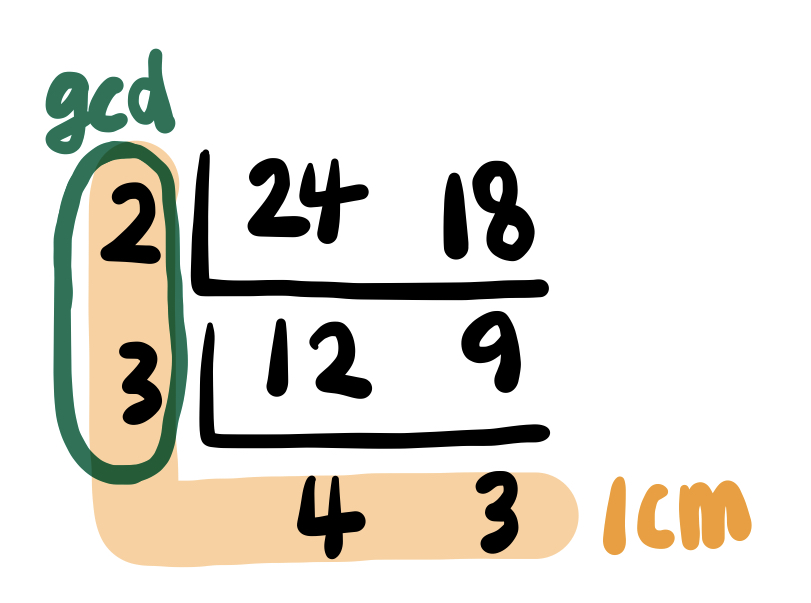 gcd
2 24 18
3 12 9
4 3 lcm